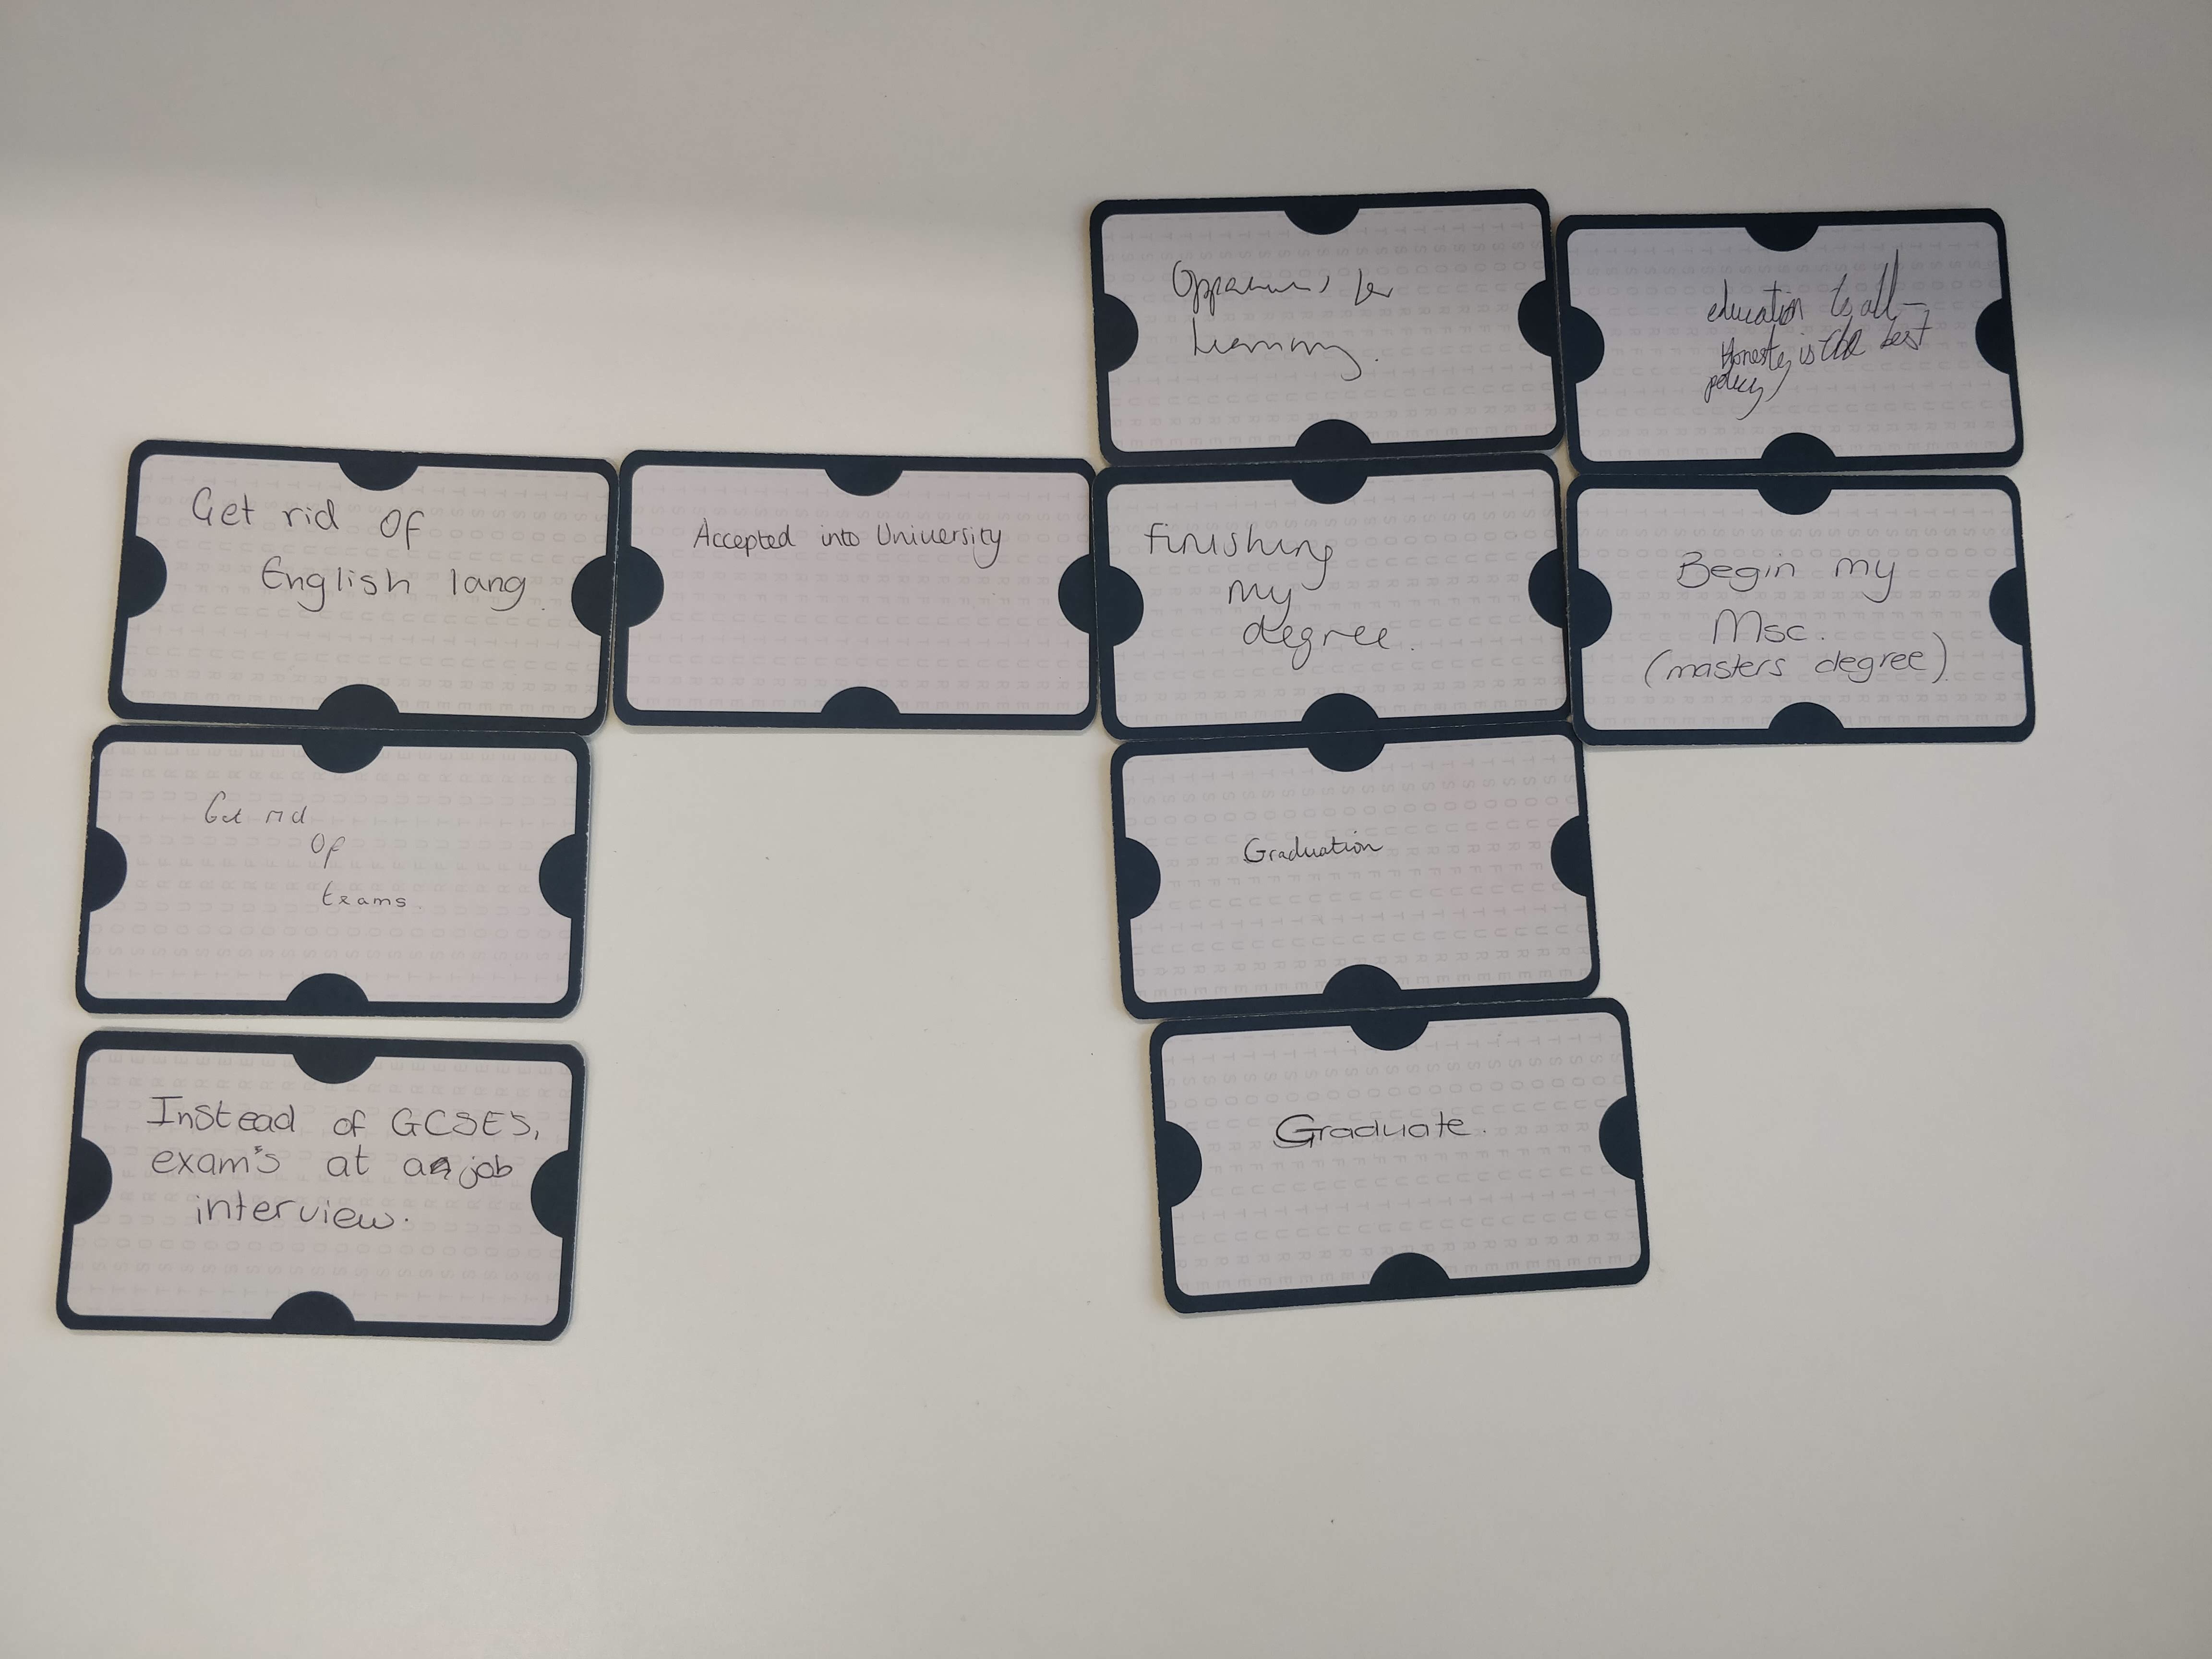 for
learning.
education to all -
Honesty is the best
policy
Get rid of
English lang.
Accepted into University
finishing
my
degree.
Begin my
Msc.
(masters degree).
Get rid
of
exams.
Graduation
Instead of GCSES,
exam's at a job
interview.
Graduate.